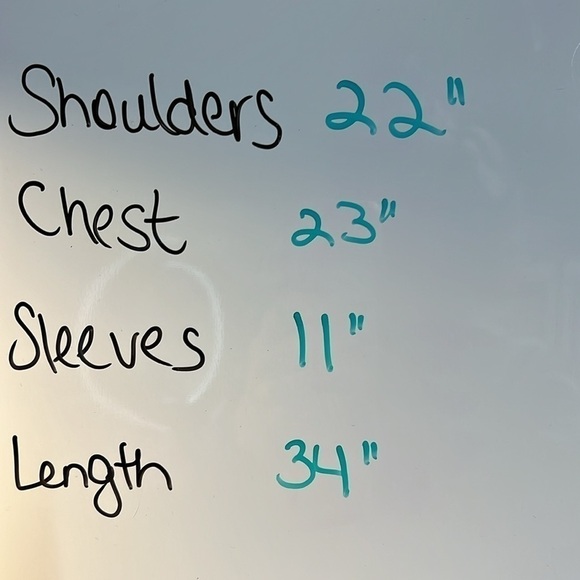 Shoulders 22"
Chest 23"
Sleeves 11"
Length 34"